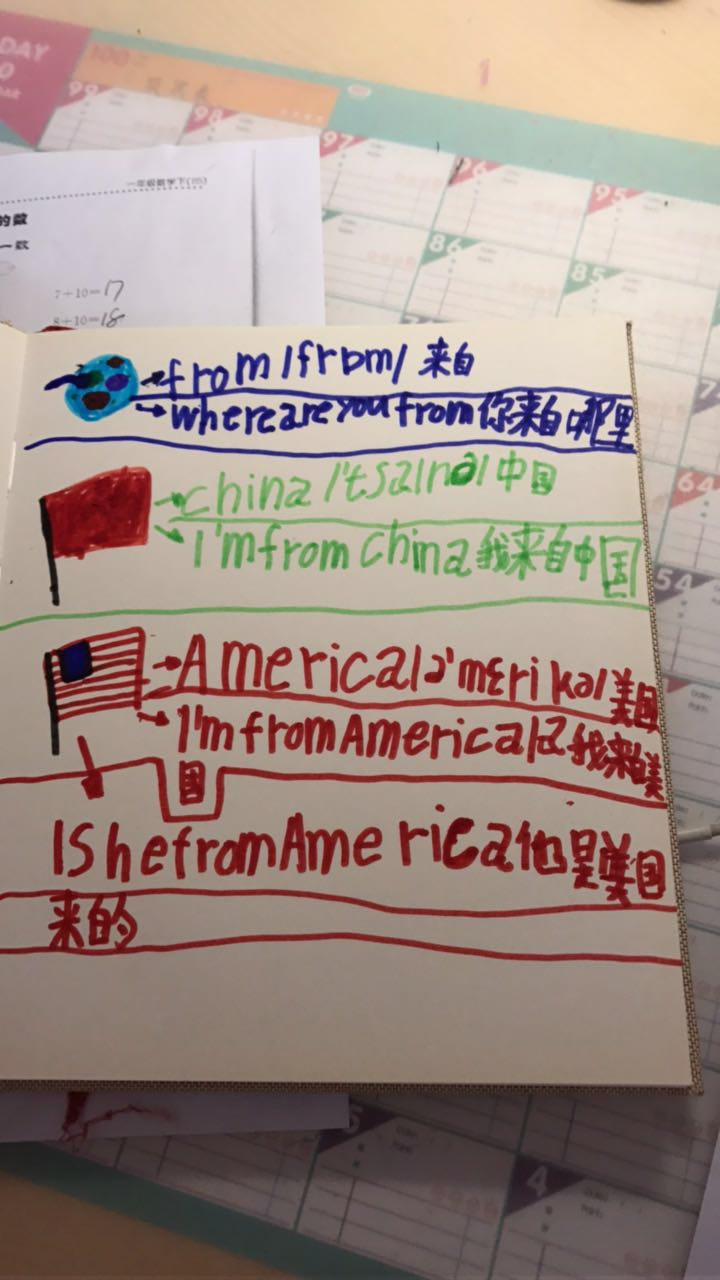 DAY
0
100
99
98
97
96
95
86
85
一年级数学下(BS)
的数
一数
7+10=17
8+10=18
from /frɒm/ 来自
where are you from 你来自哪里
64
China /'tʃaɪnə/ 中国
I'm from China 我来自中国
54
America /ə'merikə/ 美国
I'm from America 我来自美
国
Is he from America 他是美国
来的
5
4